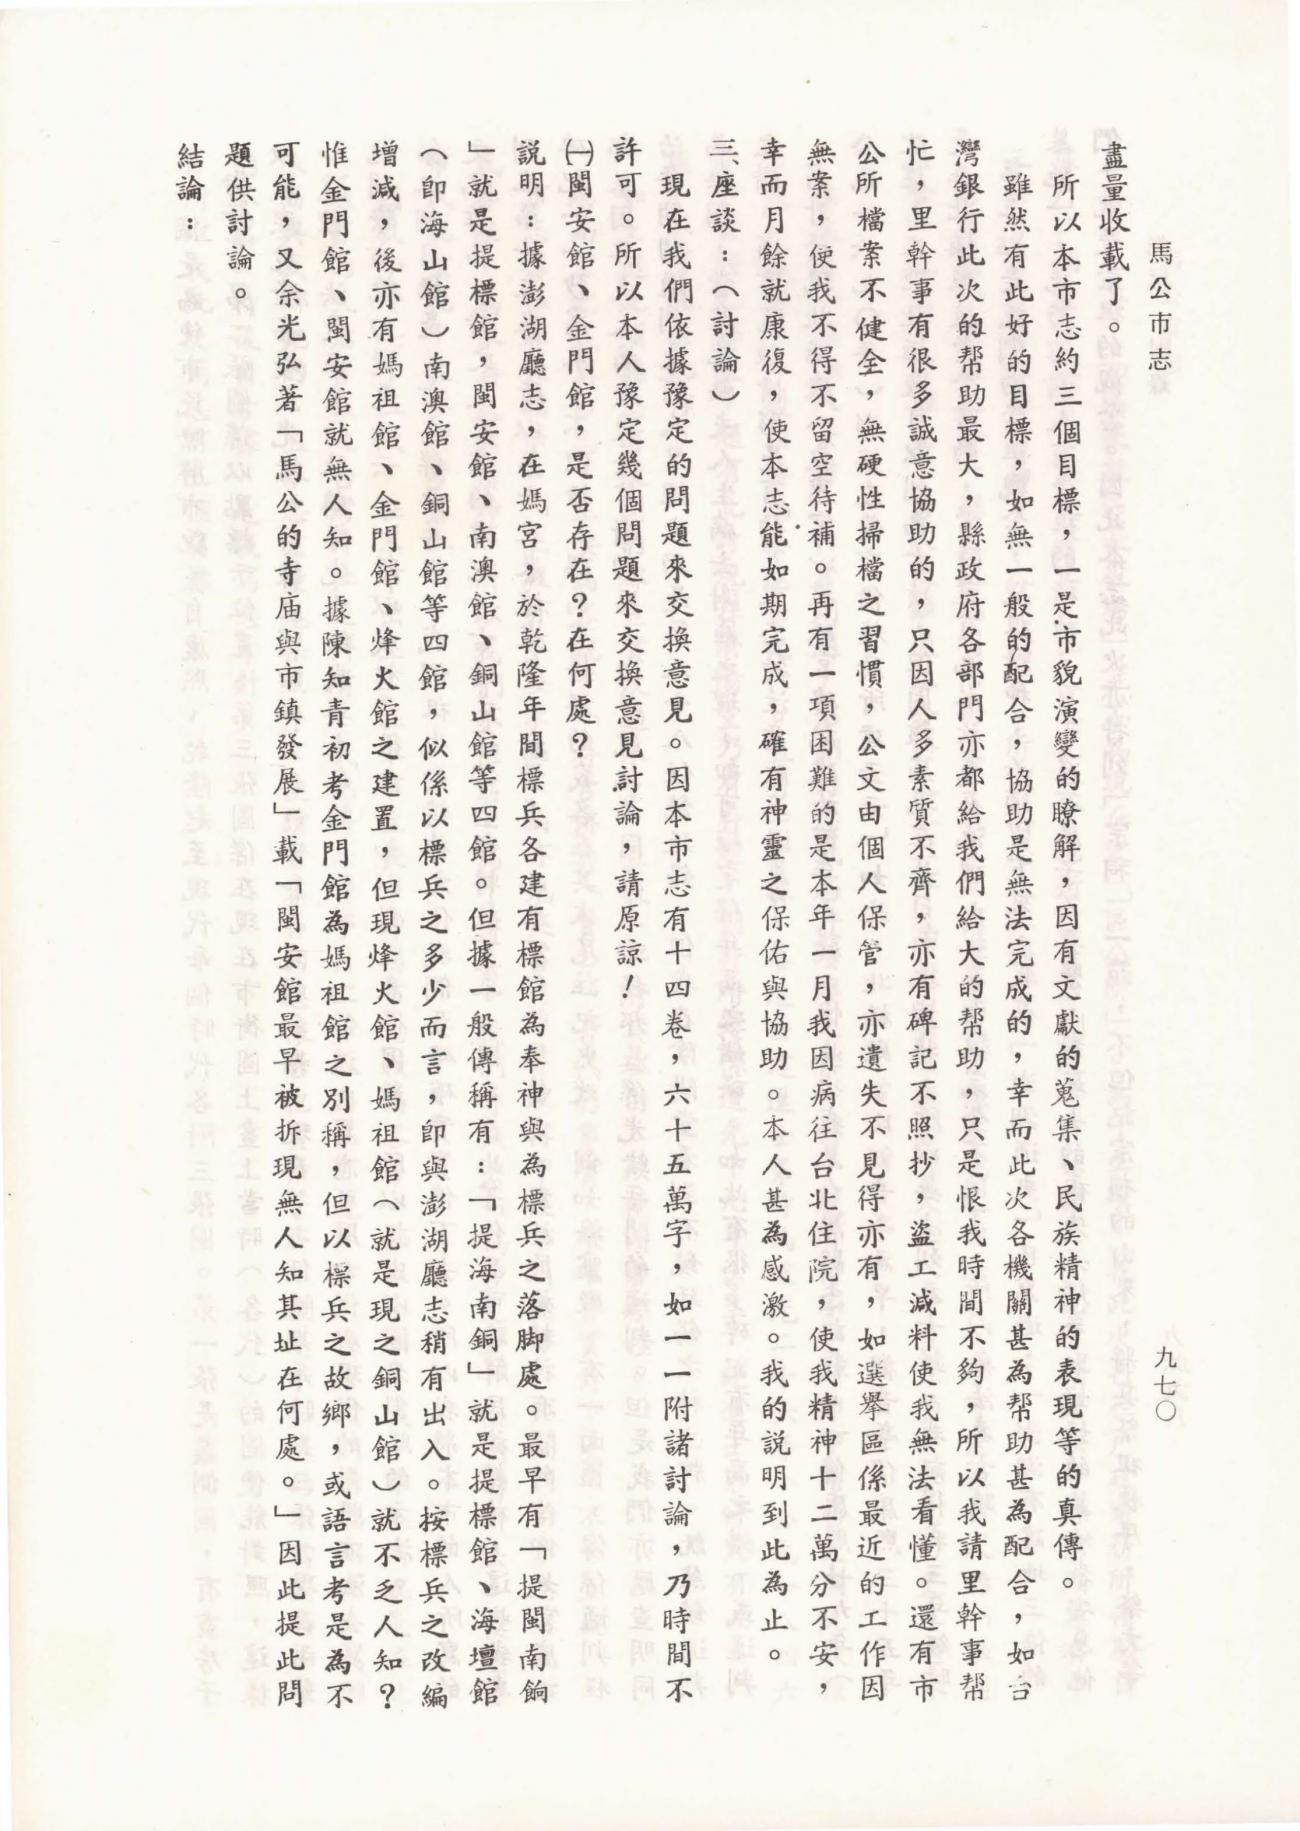 馬公市志
九七〇
盡量收載了。
所以本市志約三個目標,一是市貌演變的瞭解,因有文獻的蒐集、民族精神的表現等的真傳。
雖然有此好的目標,如無一般的配合,協助是無法完成的,幸而此次各機關甚為帮助甚為配合,如台
灣銀行此次的帮助最大,縣政府各部門亦都給我們給大的帮助,只是恨我時間不夠,所以我請里幹事帮
忙,里幹事有很多誠意協助的,只因人多素質不齊,亦有碑記不照抄,盜工減料使我無法看懂。還有市
公所檔案不健全,無硬性掃檔之習慣,公文由個人保管,亦遺失不見得亦有,如選舉區係最近的工作因
無案,使我不得不留空待補。再有一項困難的是本年一月我因病往台北住院,使我精神十二萬分不安,
幸而月餘就康復,使本志能如期完成,確有神靈之保佑與協助。本人甚為感激。我的說明到此為止。
三、座談:(討論)
現在我們依據豫定的問題來交換意見。因本市志有十四卷,六十五萬字,如一一附諸討論,乃時間不
許可。所以本人豫定幾個問題來交換意見討論,請原諒!
㈠閩安館、金門館,是否存在?在何處?
說明:據澎湖廳志,在媽宮,於乾隆年間標兵各建有標館為奉神與為標兵之落脚處。最早有「提閩南銅
」就是提標館,閩安館、南澳館、銅山館等四館。但據一般傳稱有:「提海南銅」就是提標館、海壇館
(即海山館)南澳館、銅山館等四館,似係以標兵之多少而言,即與澎湖廳志稍有出入。按標兵之改編
增減,後亦有媽祖館、金門館、烽火館之建置,但現烽火館、媽祖館(就是現之銅山館)就不乏人知?
惟金門館、閩安館就無人知。據陳知青初考金門館為媽祖館之別稱,但以標兵之故鄉,或語言考是為不
可能,又余光弘著「馬公的寺庙與市鎮發展」載「閩安館最早被拆現無人知其址在何處。」因此提此問
題供討論。
結論: